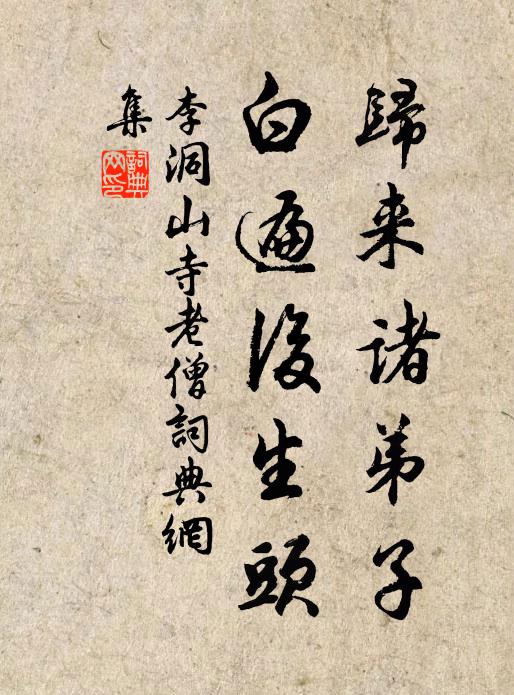 歸来諸弟子
白遍後生頭
李洞山寺老僧詞典網
集
詞典網印